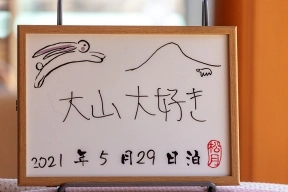 大山大好き
2021年5月29日泊
松月